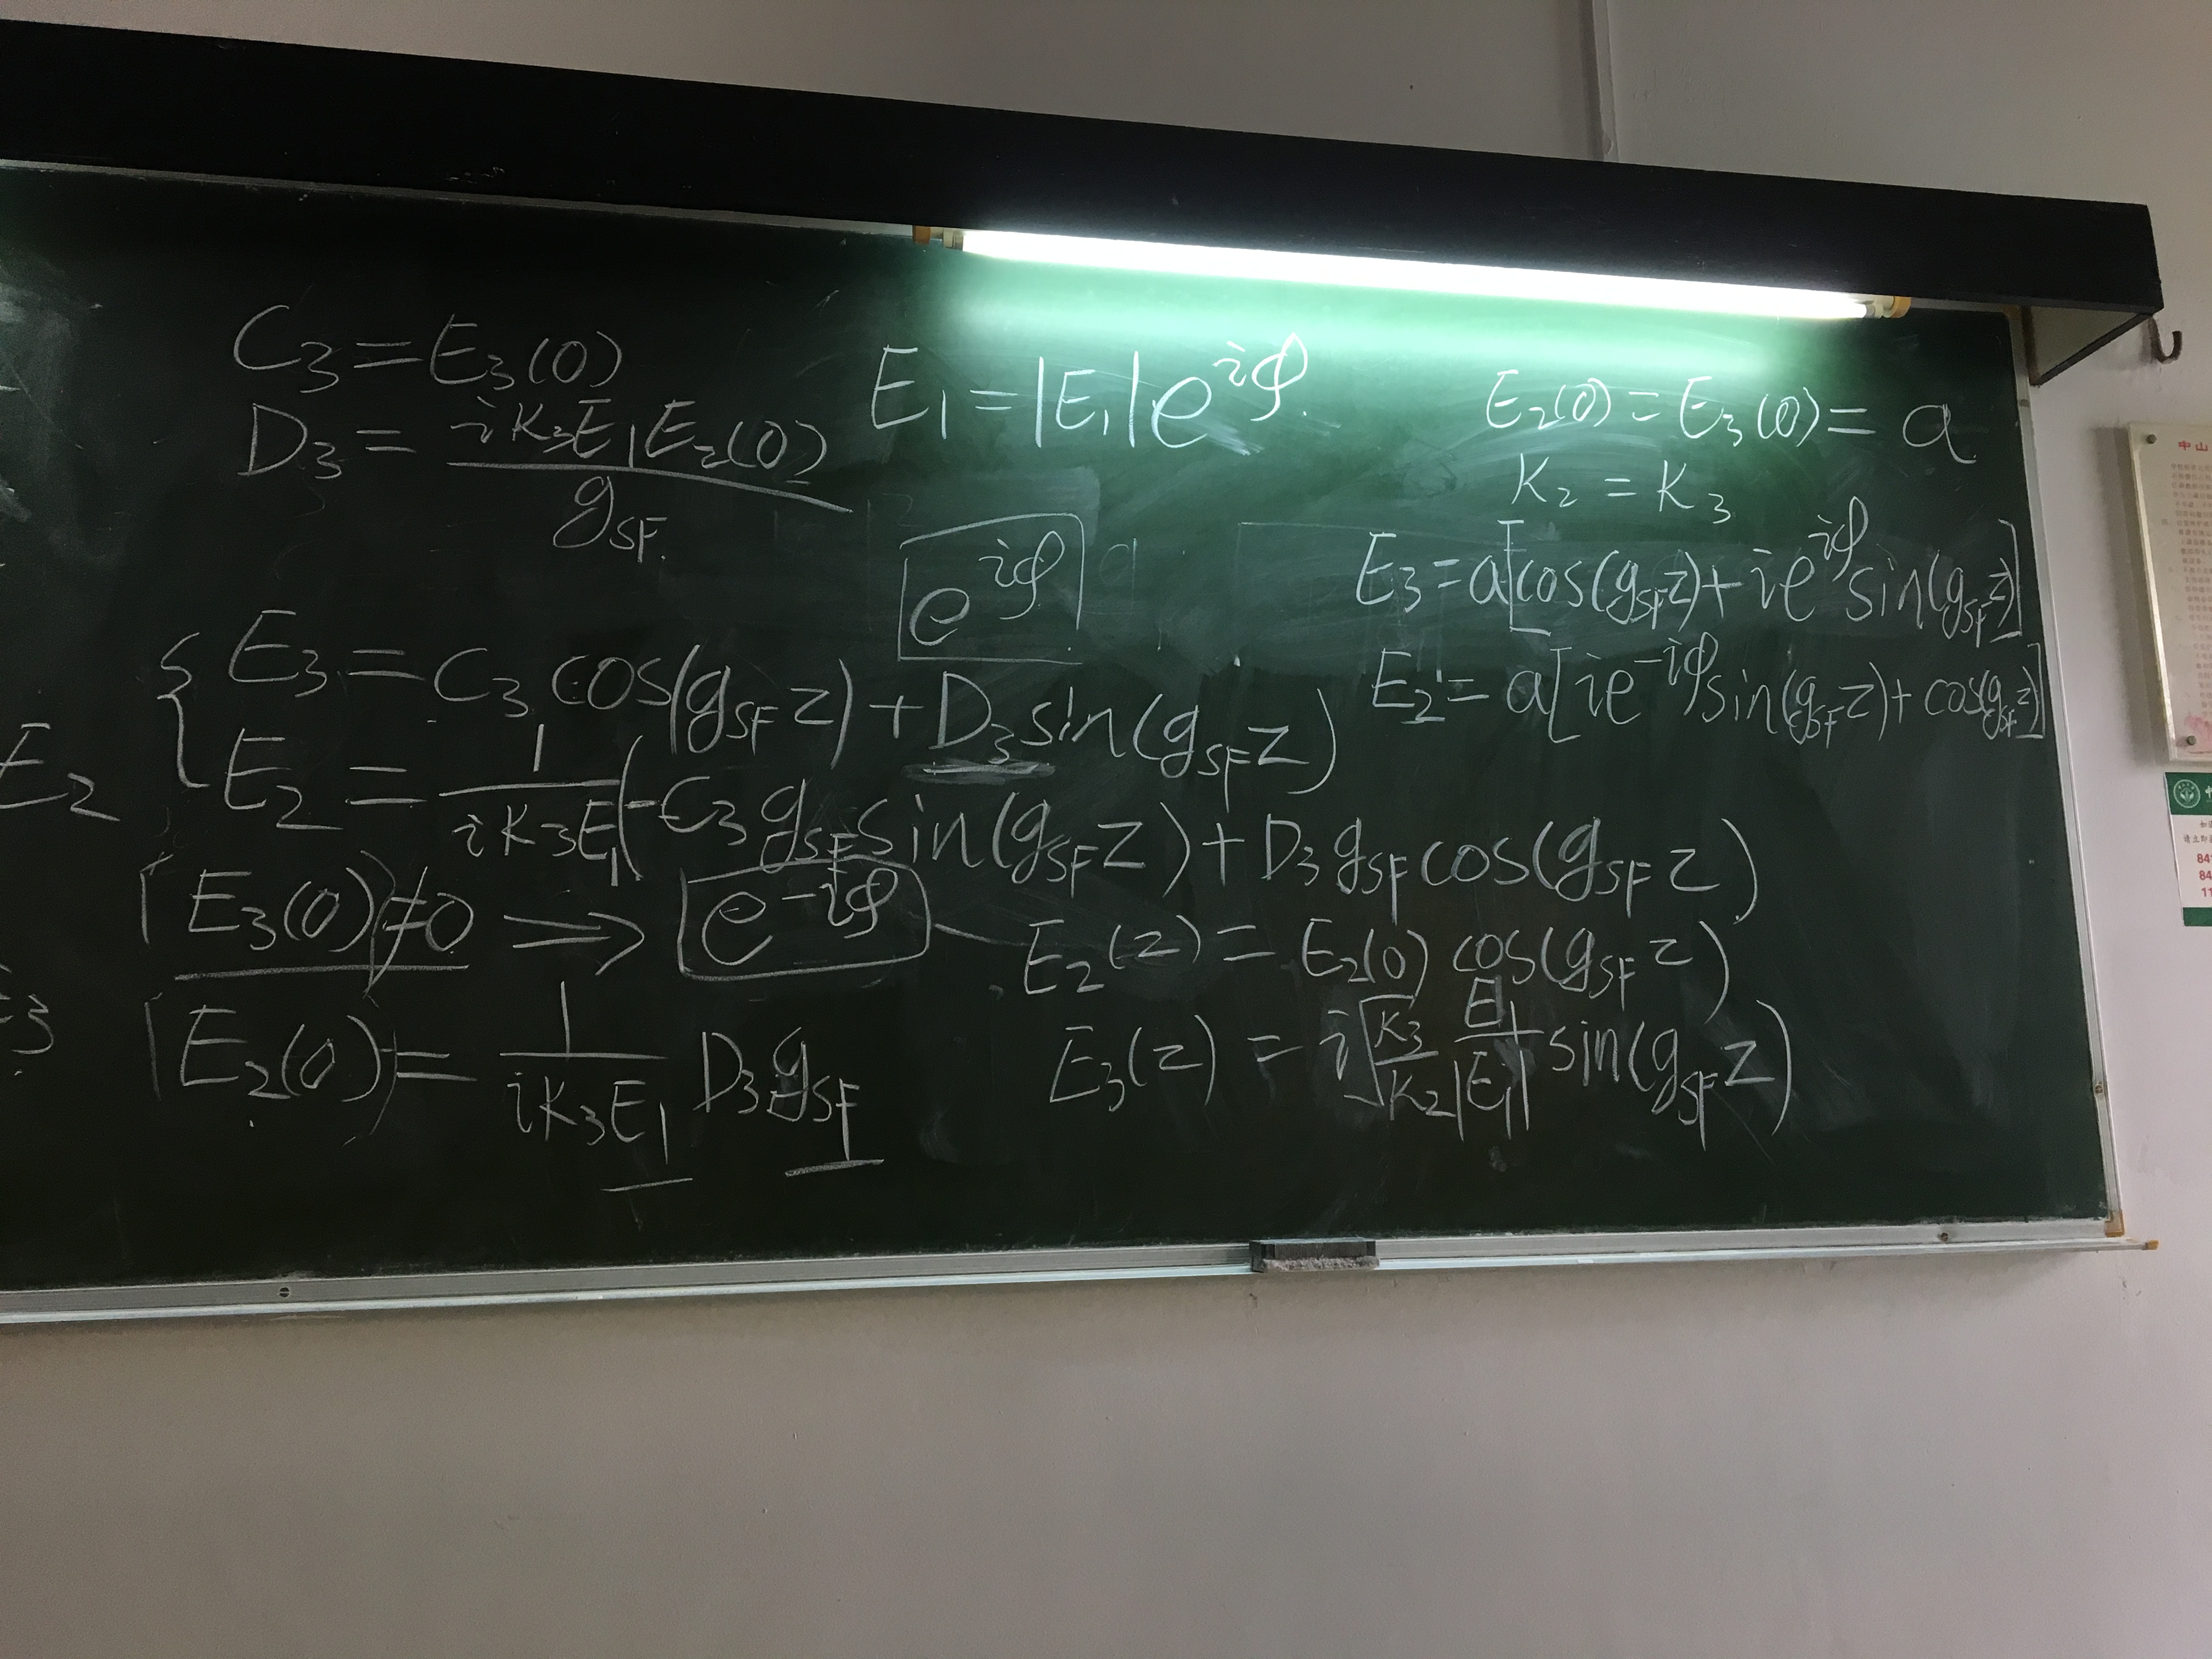 C₃ = E₃(0)
D₃ = iK₃E₁E₂(0) / g_SF
E₁ = |E₁|e^{iφ}
E₂(0) = E₃(0) = a
K₂ = K₃
e^{iφ}
E₃ = a[cos(g_SF z) + ie^{iφ} sin(g_SF z)]
E₂ = a[ie^{-iφ} sin(g_SF z) + cos(g_SF z)]
E₃ = C₃ cos(g_SF z) + D₃ sin(g_SF z)
E₂ = 1/(iK₃E₁) (-C₃ g_SF sin(g_SF z) + D₃ g_SF cos(g_SF z))
E₂
E₃(0) ≠ 0 → e^{-iφ}
E₂(z) = E₂(0) cos(g_SF z)
E₂(0) = 1/(iK₃E₁) D₃ g_SF
E₃(z) = i√(K₃/K₂) E₁/|E₁| sin(g_SF z)
中山
84
84
11